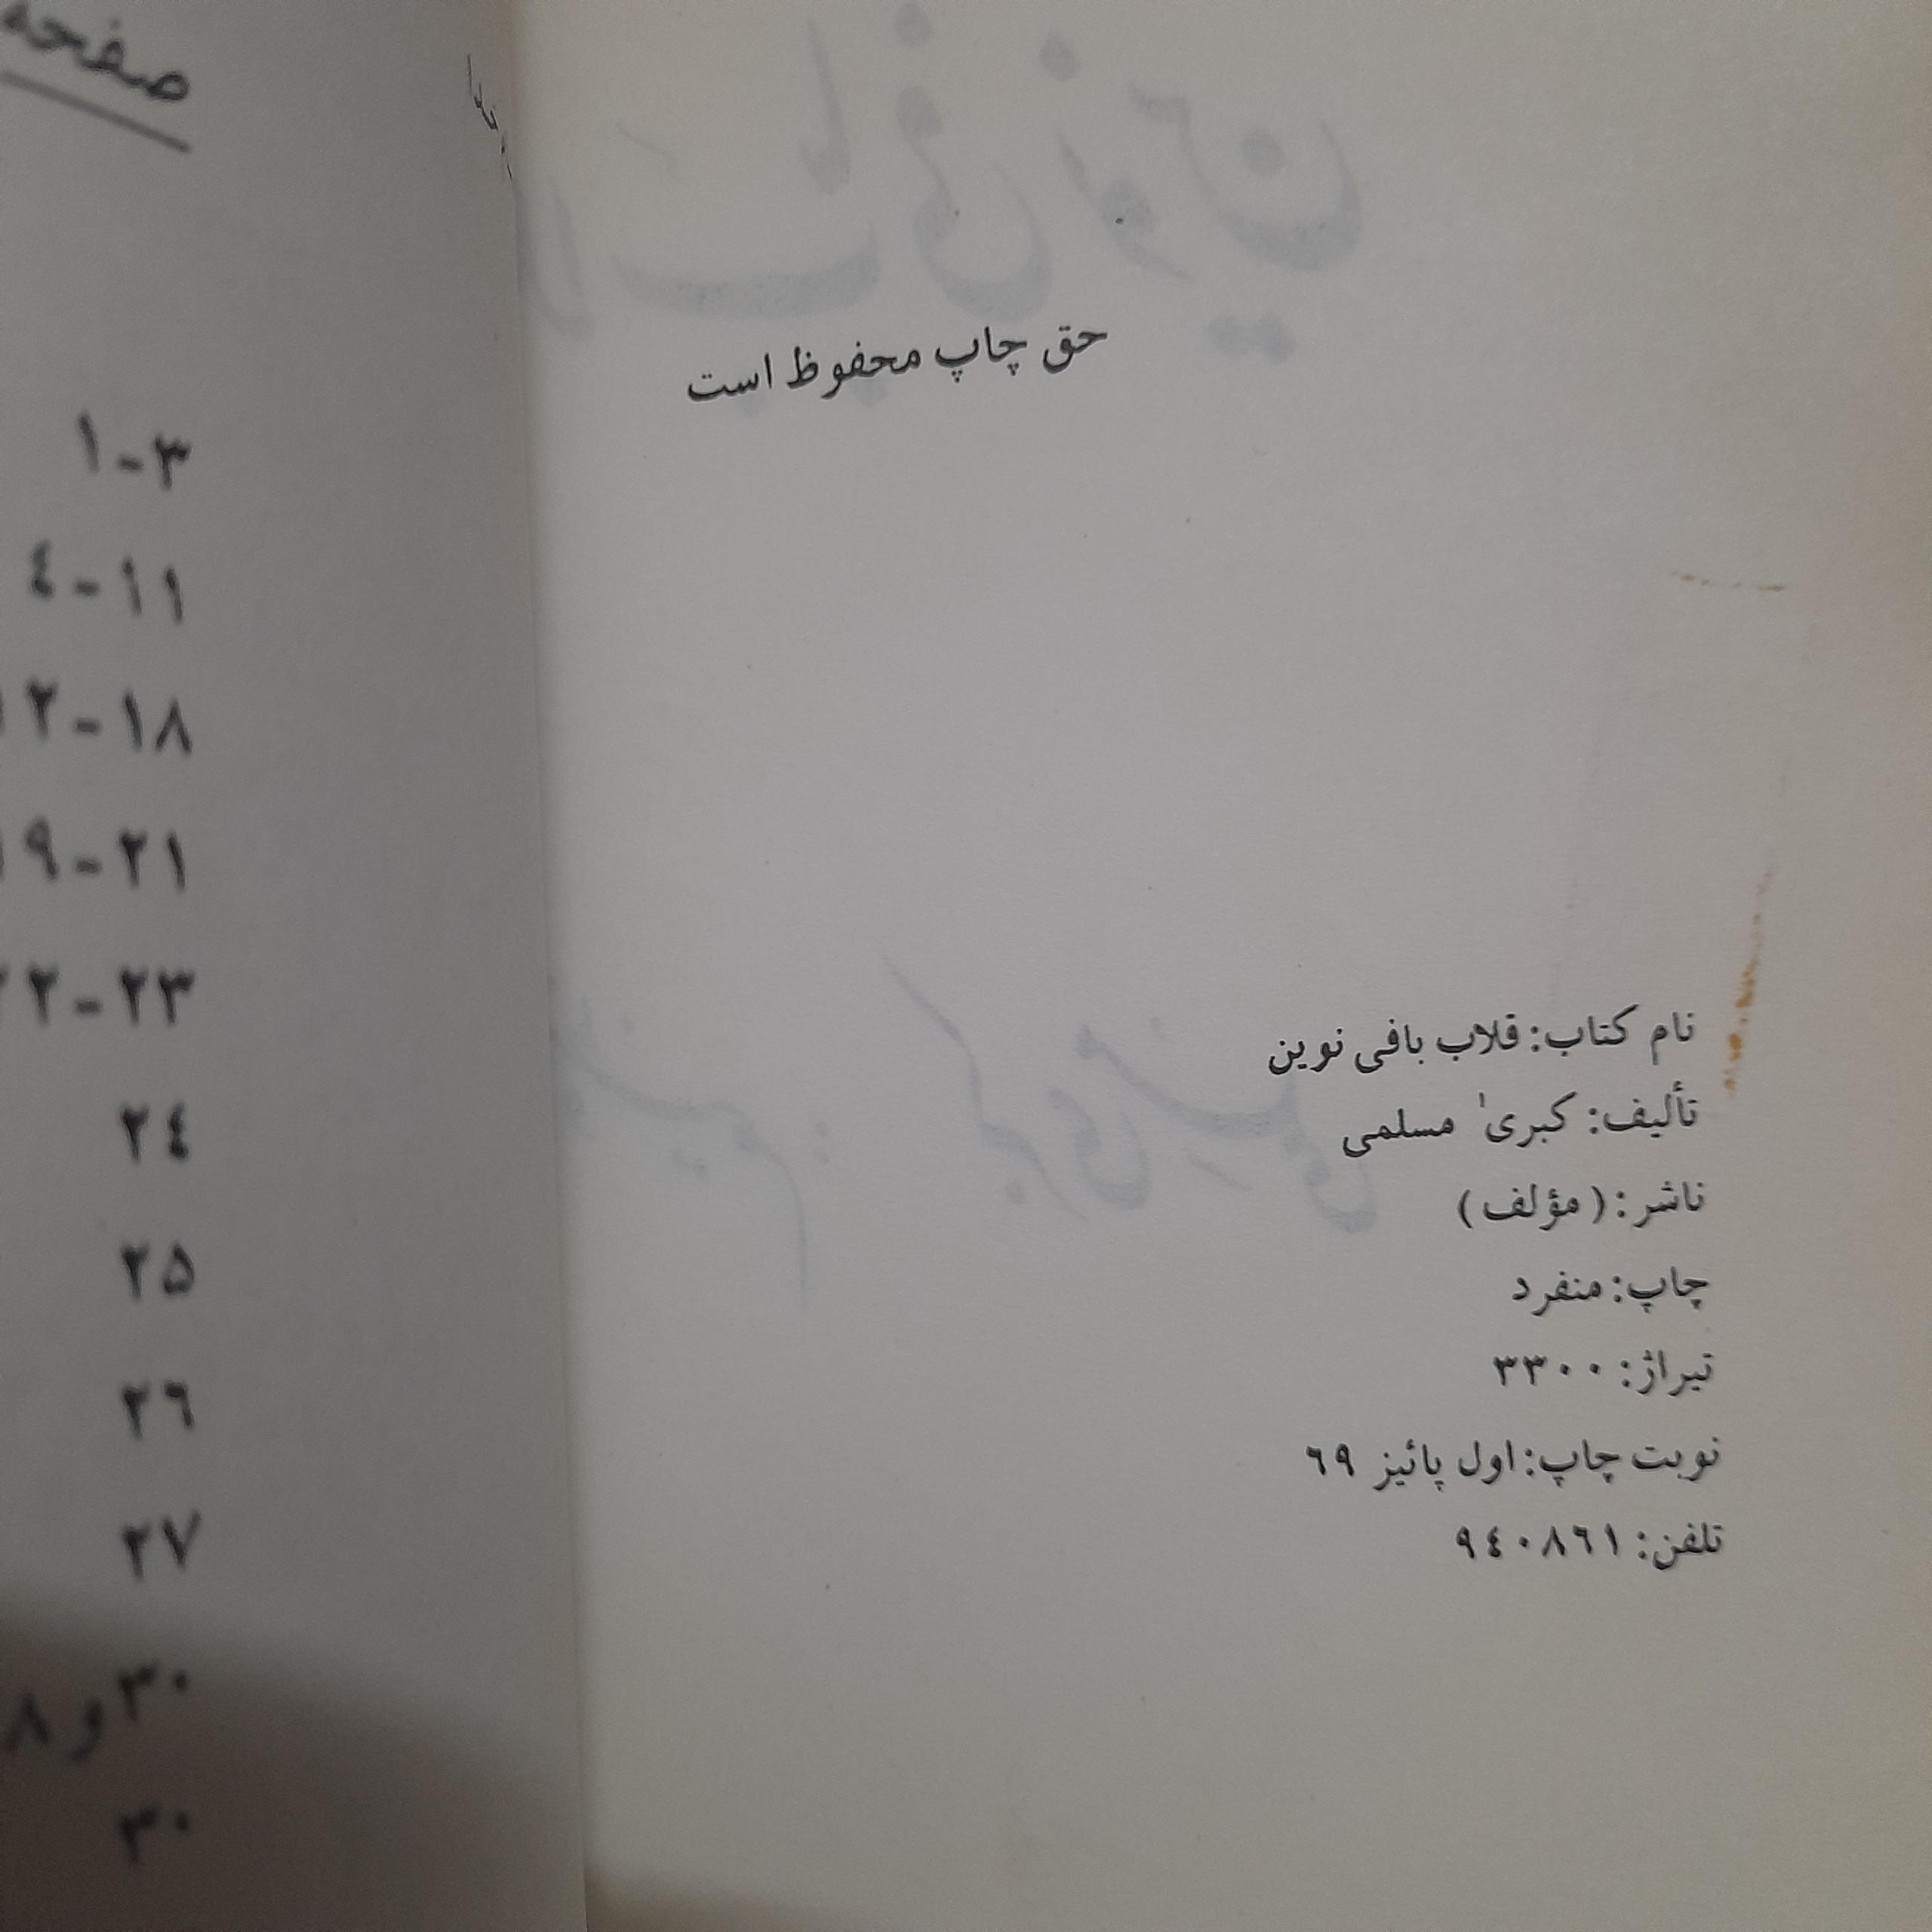 حق چاپ محفوظ است
نام کتاب: قلاب بافی نوین
تألیف: کبریٰ مسلمی
ناشر: (مؤلف)
چاپ: منفرد
تیراژ: ۳۳۰۰
نوبت چاپ: اول پائیز ٦۹
تلفن: ۹٤۰۸٦۱
صفحه
۱-۳
٤-۱۱
۲-۱۸
۹-۲۱
۲-۲۳
۲٤
۲۵
۲٦
۲۷
۸ و ۳۰
۳۰